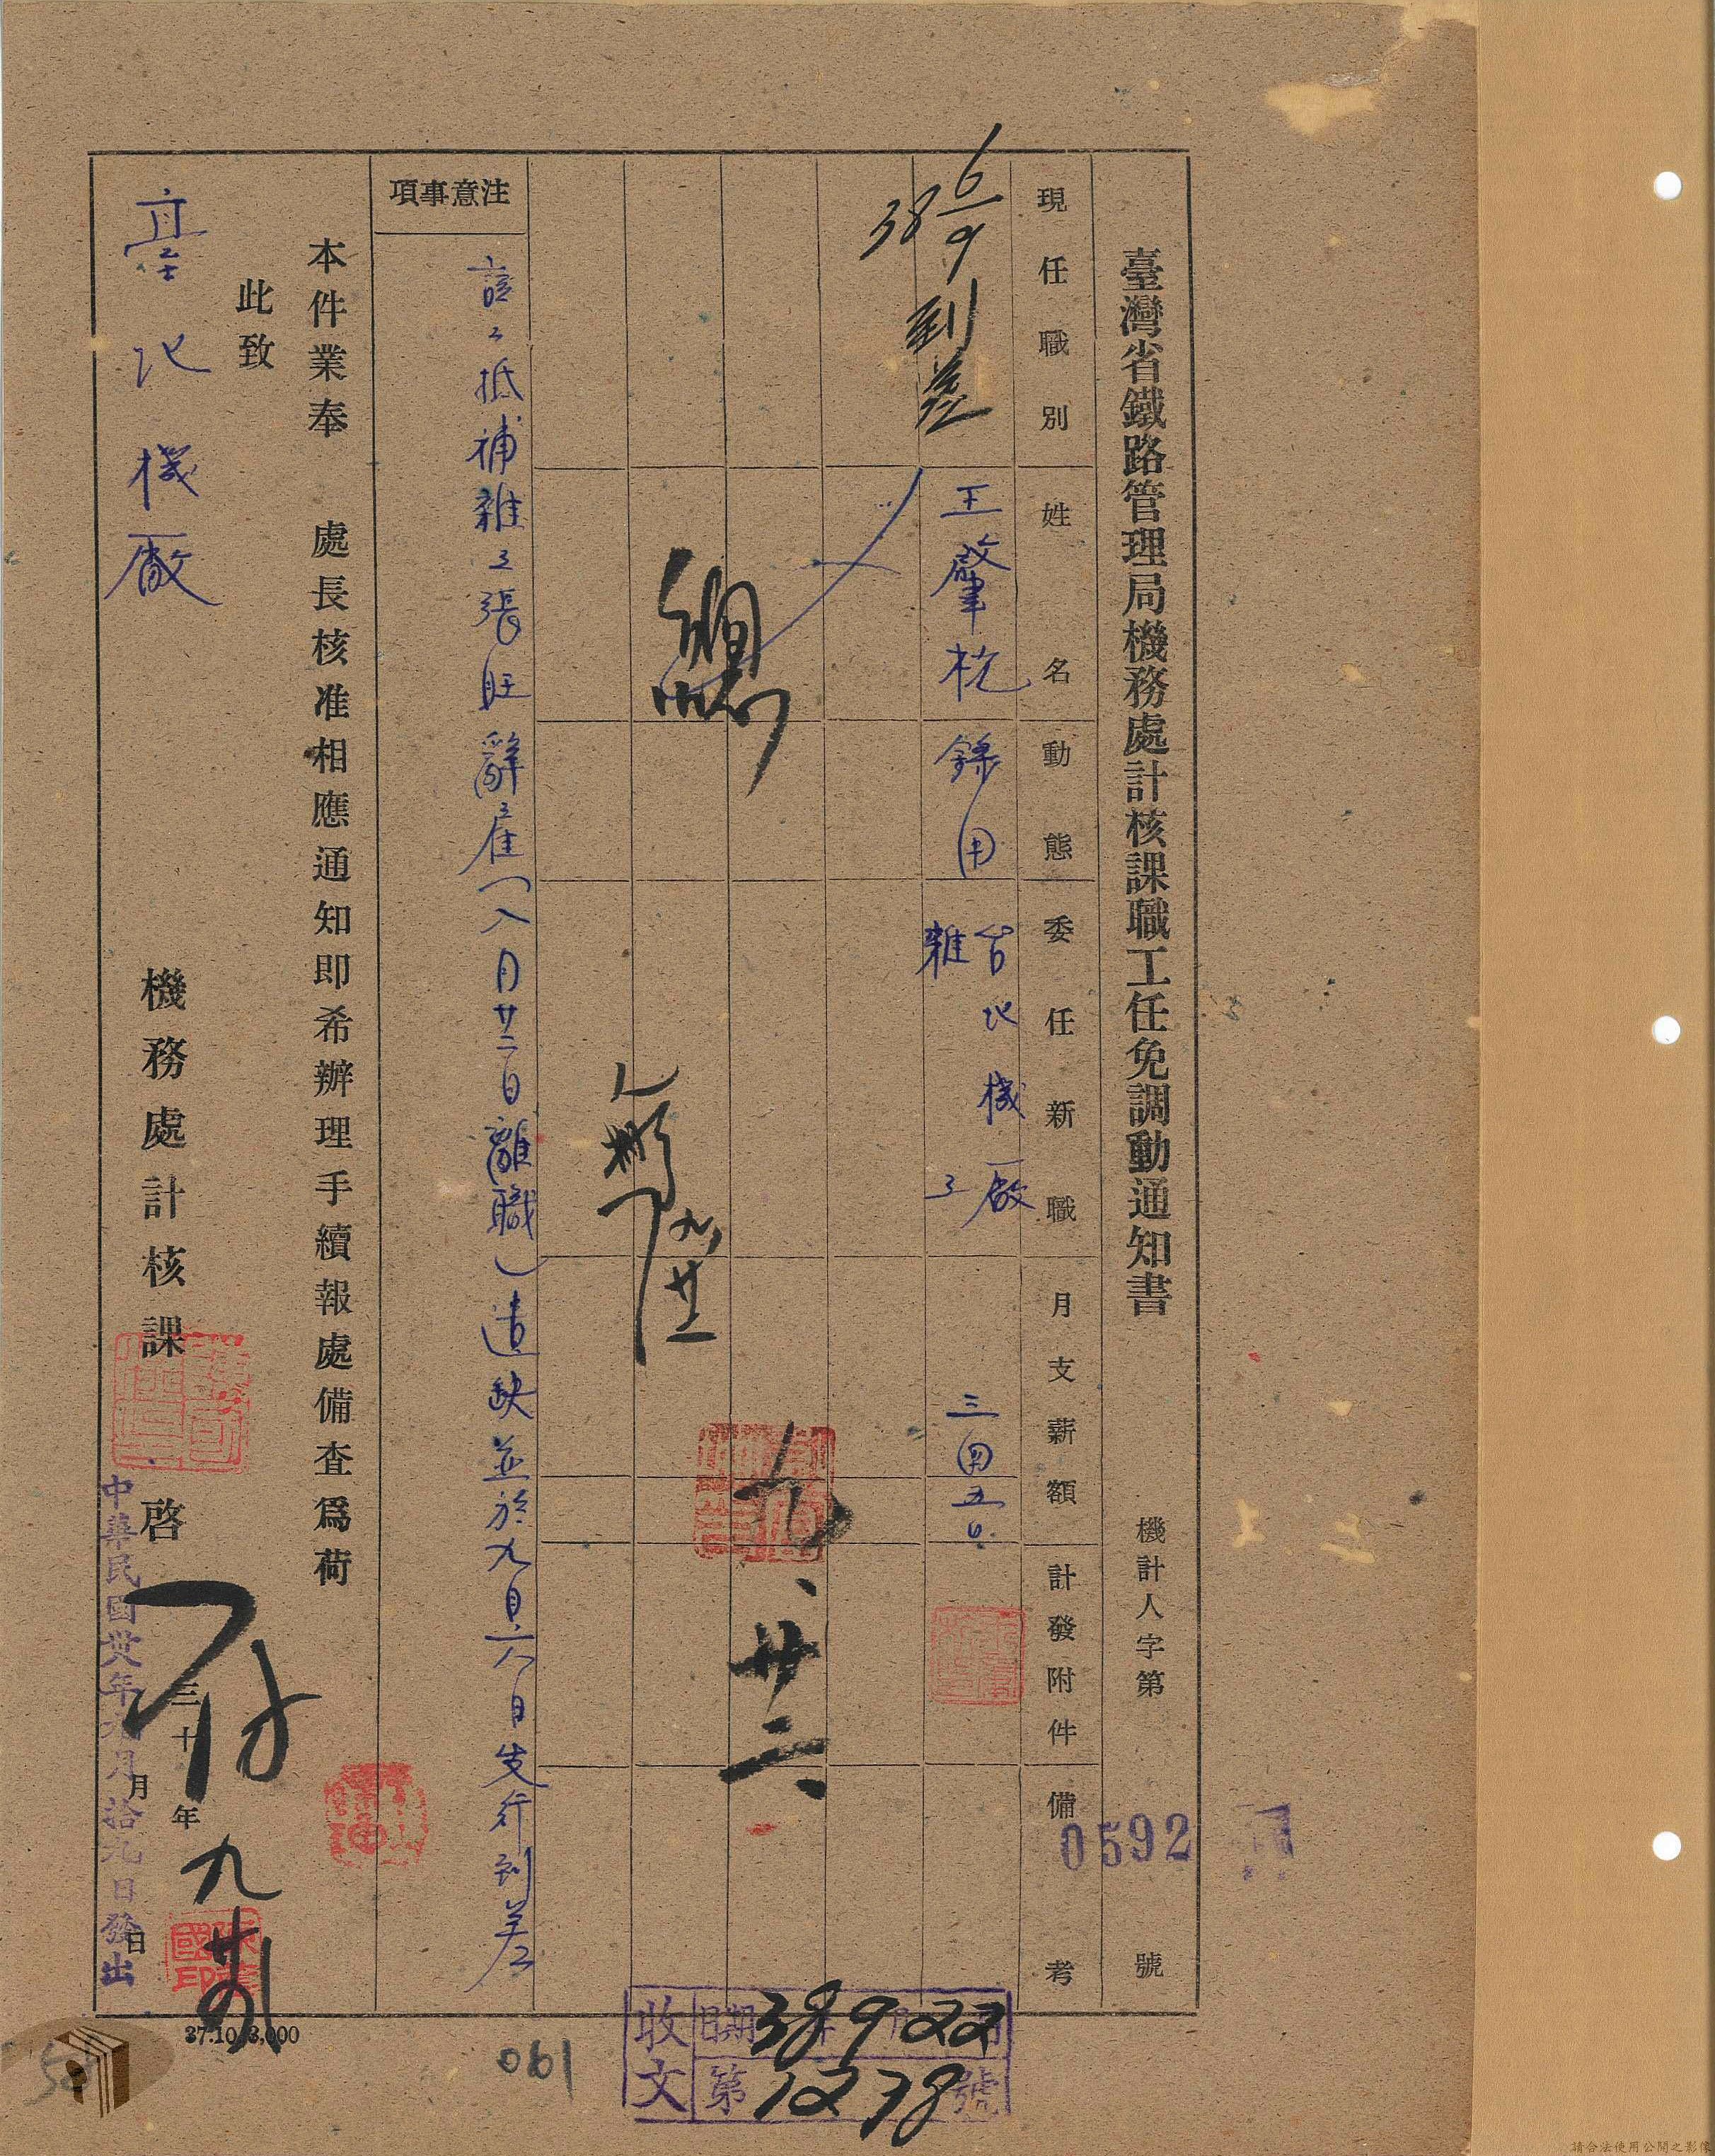 臺灣省鐵路管理局機務處計核課職工任免調動通知書
機計人字第 0592 號
現任職別
姓名
動態
委任新職
月支薪額
計發附件
備考
38 6/9 到差
王肇
錄用
台北機廠
雜工
總
九、廿二、
九廿二
注意事項
該工抵補雜工張旺辭雇(八月廿二日離職)遺缺並於九月六日先行到差
本件業奉 處長核准相應通知即希辦理手續報處備查為荷
此致
臺北機廠
機務處計核課 啓
三十 年 月 日
中華民國卅八年九月拾九日發出
37.10.3,000
061
收文
日期 38 9 22
第 1278 號
請合法使用公開之影像